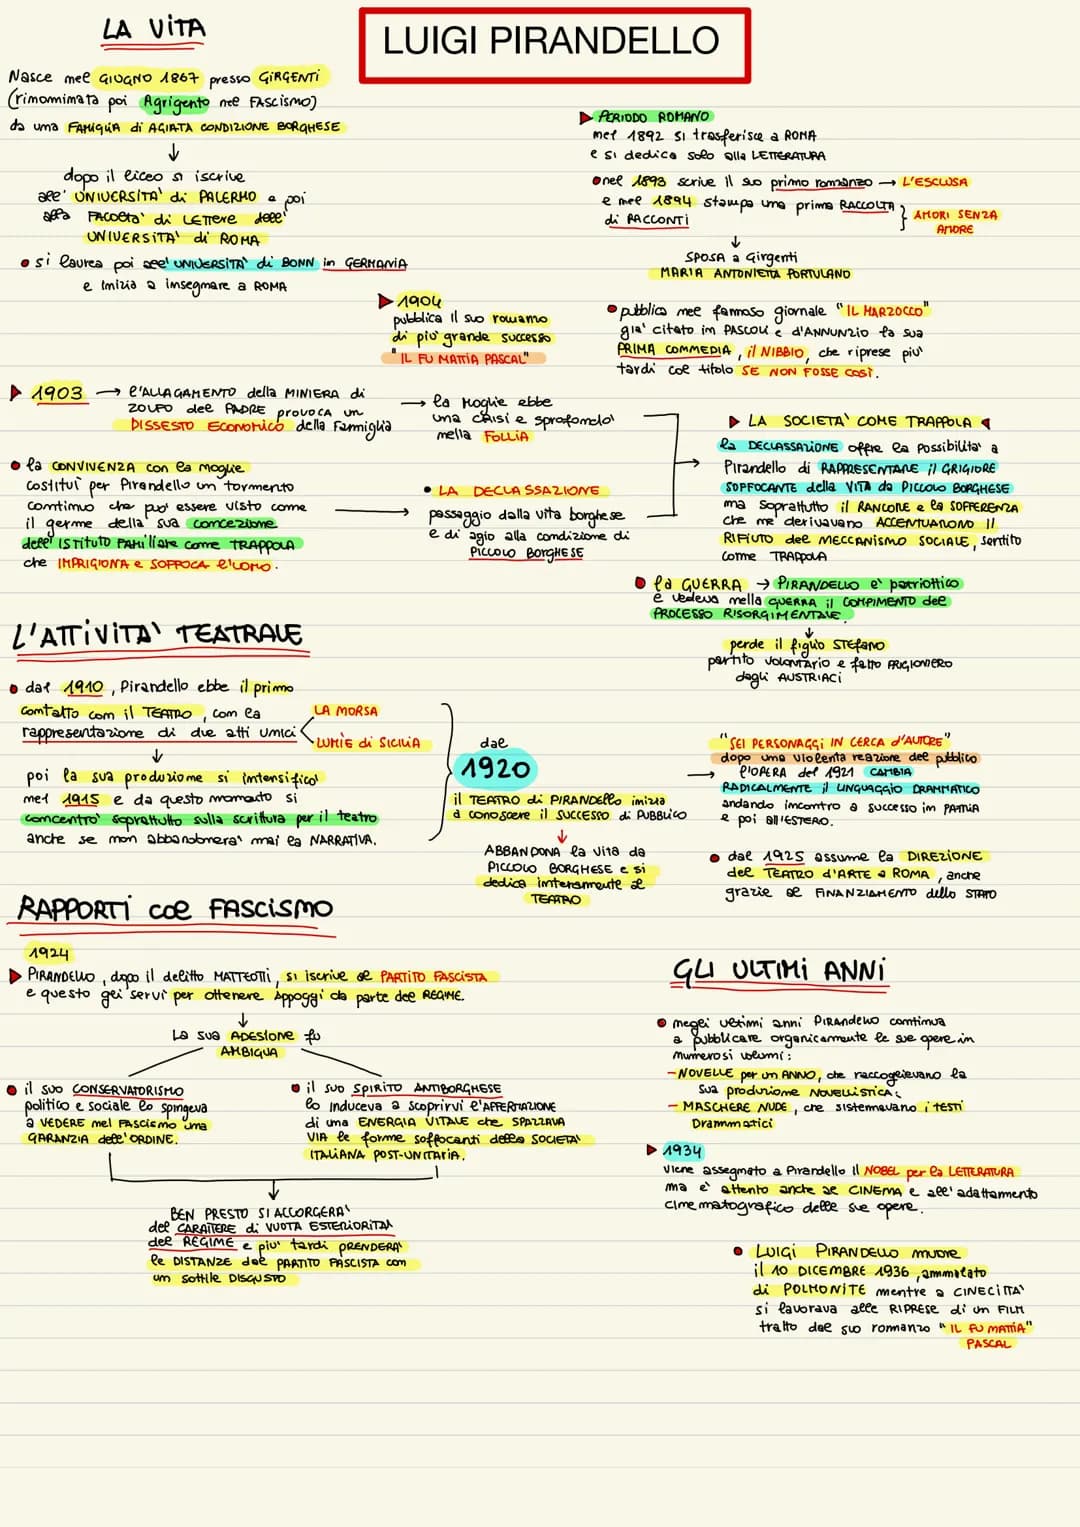 LUIGI PIRANDELLO
LA VITA
Nasce nel GIUGNO 1867 presso GIRGENTI
(rinominata poi Agrigento nel FASCISMO)
da una FAMIGLIA di AGIATA CONDIZIONE BORGHESE
↓
dopo il liceo si iscrive
all' UNIVERSITA' di PALERMO e poi
alla FACOLTA' di LETTERE dell'
UNIVERSITA' di ROMA
• si laurea poi all' UNIVERSITA' di BONN in GERMANIA
e inizia a insegnare a ROMA
▶ PERIODO ROMANO
nel 1892 si trasferisce a ROMA
e si dedica solo alla LETTERATURA
• nel 1893 scrive il suo primo romanzo → L'ESCLUSA
e nel 1894 stampa una prima RACCOLTA
di RACCONTI } AMORI SENZA
AMORE
↓
SPOSA a Girgenti
MARIA ANTONIETTA PORTULANO
▶ 1904
pubblica il suo romanzo
di piu' grande successo
"IL FU MATTIA PASCAL"
• pubblica nel famoso giornale "IL MARZOCCO"
gia' citato in PASCOLI e d'ANNUNZIO la sua
PRIMA COMMEDIA, il NIBBIO, che riprese piu'
tardi col titolo SE NON FOSSE COSÌ.
▶ 1903 → l'ALLAGAMENTO della MINIERA di
ZOLFO del PADRE provoca un
DISSESTO ECONOMICO della Famiglia
→ la Moglie ebbe
una CRISI e sprofondo'
nella FOLLIA
• la CONVIVENZA con la moglie
costitui' per Pirandello un tormento
continuo che puo' essere visto come
il germe della sua concezione
dell' ISTITUTO FAMILIARE come TRAPPOLA
che IMPRIGIONA e SOFFOCA l'UOMO.
→
• LA DECLASSAZIONE
passaggio dalla vita borghese
e di agio alla condizione di
PICCOLO BORGHESE
→
▶ LA SOCIETA' COME TRAPPOLA ◀
la DECLASSAZIONE offre la possibilita' a
Pirandello di RAPPRESENTARE il GRIGIORE
SOFFOCANTE della VITA da PICCOLO BORGHESE
ma soprattutto il RANCORE e la SOFFERENZA
che ne derivavano ACCENTUARONO il
RIFIUTO del MECCANISMO SOCIALE, sentito
come TRAPPOLA
• la GUERRA → PIRANDELLO e' patriottico
e vedeva nella GUERRA il COMPIMENTO del
PROCESSO RISORGIMENTALE
↓
perde il figlio STEFANO
partito volontario e fatto PRIGIONIERO
dagli AUSTRIACI
L'ATTIVITA' TEATRALE
• dal 1910, Pirandello ebbe il primo
contatto con il TEATRO, con la
rappresentazione di due atti unici
LA MORSA
LUMIE di SICILIA
↓
poi la sua produzione si intensifico'
nel 1915 e da questo momento si
concentro' soprattutto sulla scrittura per il teatro
anche se non abbandonera' mai la NARRATIVA.
dal
1920
il TEATRO di PIRANDELLO inizia
a conoscere il SUCCESSO di PUBBLICO
↓
ABBANDONA la vita da
PICCOLO BORGHESE e si
dedica interamente al
TEATRO
→
"SEI PERSONAGGI IN CERCA d'AUTORE"
dopo una violenta reazione del pubblico
l'OPERA del 1921 CAMBIA
RADICALMENTE il LINGUAGGIO DRAMMATICO
andando incontro a successo in PATRIA
e poi all'ESTERO.
• dal 1925 assume la DIREZIONE
del TEATRO d'ARTE a ROMA, anche
grazie al FINANZIAMENTO dello STATO
RAPPORTI col FASCISMO
1924
▶ PIRANDELLO, dopo il delitto MATTEOTTI, si iscrive al PARTITO FASCISTA
e questo gli servi' per ottenere appoggi da parte del REGIME.
↓
La sua ADESIONE fu
AMBIGUA
• il suo CONSERVATORISMO
politico e sociale lo spingeva
a VEDERE nel FASCISMO una
GARANZIA dell'ORDINE.
• il suo SPIRITO ANTIBORGHESE
lo induceva a scoprirvi l'AFFERMAZIONE
di una ENERGIA VITALE che SPAZZAVA
VIA le forme soffocanti della SOCIETA'
ITALIANA POST-UNITARIA.
↓
BEN PRESTO SI ACCORGERA'
del CARATTERE di VUOTA ESTERIORITA'
del REGIME e piu' tardi PRENDERA'
le DISTANZE dal PARTITO FASCISTA con
un sottile DISGUSTO
GLI ULTIMI ANNI
• negli ultimi anni PIRANDELLO continua
a pubblicare organicamente le sue opere in
numerosi volumi:
- NOVELLE per un ANNO, che raccoglievano la
sua produzione NOVELLISTICA;
- MASCHERE NUDE, che sistemavano i testi
Drammatici
▶ 1934
viene assegnato a Pirandello il NOBEL per la LETTERATURA
ma e' attento anche al CINEMA e all'adattamento
cinematografico delle sue opere.
• LUIGI PIRANDELLO muore
il 10 DICEMBRE 1936, ammalato
di POLMONITE mentre a CINECITTA'
si lavorava alle RIPRESE di un FILM
tratto dal suo romanzo "IL FU MATTIA"
PASCAL